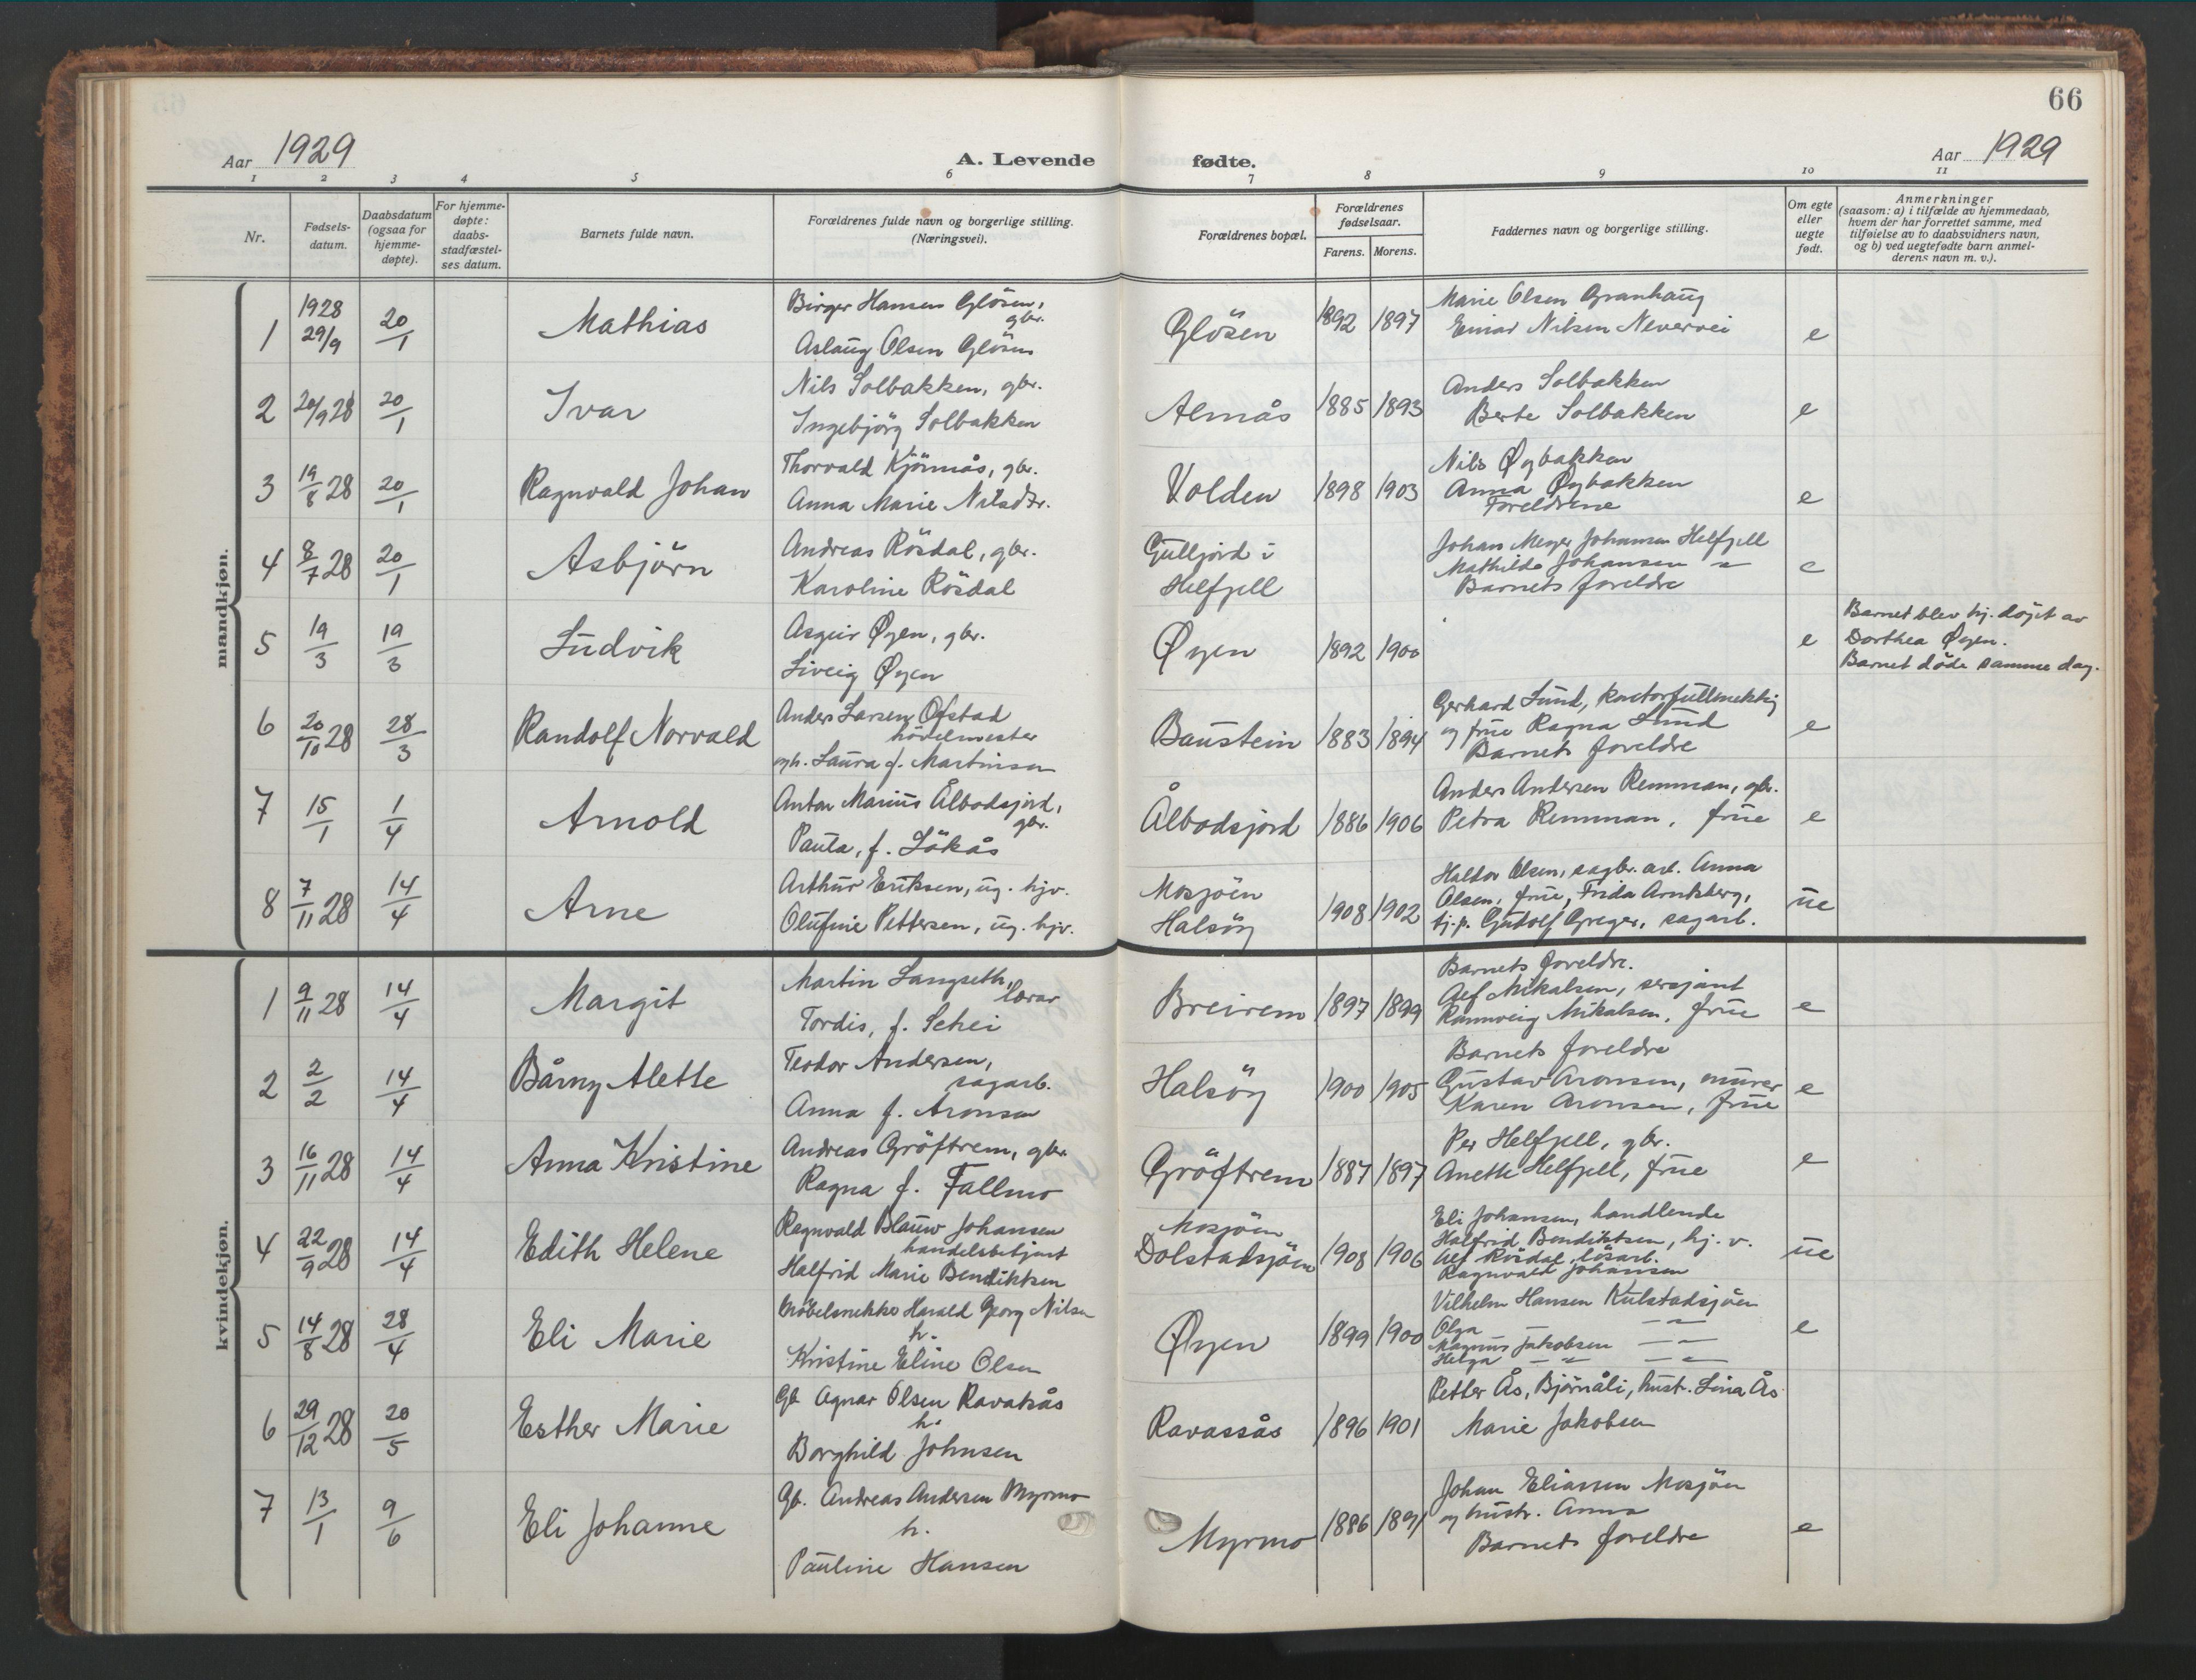 66
Aar 1929
A. Levende fødte.
Aar 1929
1 2 3 4 5 6 7 8 9 10 11
Nr.
Fødsels-
datum.
Daabsdatum
(ogsaa for
hjemme-
døpte).
For hjemme-
døpte:
daabs-
stadfæstel-
ses datum.
Barnets fulde navn.
Forældrenes fulde navn og borgerlige stilling.
(Næringsvei).
Forældrenes bopæl.
Forældrenes
fødselsaar.
Farens. Morens.
Faddernes navn og borgerlige stilling.
Om egte
eller
uegte
født.
Anmerkninger
(saasom: a) i tilfælde av hjemmedaab,
hvem der har forrettet samme, med
tilføielse av to daabsvidners navn,
og b) ved uegtefødte barn anmel-
derens navn m. v.).
mandkjøn.
1 1928 29/9 20/1 Mathias
Birger Hansen Glösen,
gbr.
Aslaug Olsen Glösen
Glösen 1892 1897
Marie Olsen Granhaug
Einar Nilsen Nevervei
e
2 20/9 28 20/1 Ivar
Nils Solbakken, gbr.
Ingebjörg Solbakken
Almås 1885 1893
Anders Solbakken
Berte Solbakken
e
3 19/8 28 20/1 Ragnvald Johan
Thorvald Kjönnås, gbr.
Anna Marie Nilsdtr.
Volden 1898 1903
Nils Øybakken
Anna Øybakken
Foreldrene
e
4 8/7 28 20/1 Asbjörn
Andreas Rösdal, gbr.
Karoline Rösdal
Gulljord i
Helfjell
Johan Meyer Johansen Helfjell
Mathilde Johansen "
Barnets foreldre
e
5 19/3 19/3 Ludvik
Asgeir Øyen, gbr.
Liveig Øyen
Øyen 1892 1900
e
Barnet blev hj. döpt av
Dorthea Øyen.
Barnet döde samme dag.
6 20/10 28 28/3 Randolf Norvald
Anders Larsen Ofstad
hövelmester
og h. Laura f. Martinsen
Baustein 1883 1894
Gerhard Lund, kontorfullmektig
og frue Ragna Lund
Barnets foreldre
e
7 15/1 1/4 Arnold
Anton Marius Ålbodsjord,
gbr.
Paula, f. Lökås
Ålbodsjord 1886 1906
Anders Andersen Remman, gbr.
Petra Remman, frue
e
8 7/11 28 14/4 Arne
Arthur Eriksen, ug. hjv.
Olufine Pettersen, ug. hjv.
Mosjöen
Halsöy
1908 1902
Haldor Olsen, sagbr. arb. Anna
Olsen, frue, Frida Arntsberg,
tj.p. Gudolf Greger, sagarb.
ue
kvindekjøn.
1 9/11 28 14/4 Margit
Martin Langseth,
lærer
Tordis, f. Schei
Breirem 1897 1899
Barnets foreldre.
Alf Mikalsen, sersjant
Rannveig Mikalsen, frue
e
2 2/2 14/4 Bårny Alette
Teodor Andersen,
sagarb.
Anna f. Aronsen
Halsöy 1900 1905
Barnets foreldre
Gustav Aronsen, murer
Karen Aronsen, frue
e
3 16/11 28 14/4 Anna Kristine
Andreas Gröftrem, gbr.
Ragna f. Fallmo
Gröftrem 1887 1897
Per Helfjell, gbr.
Anette Helfjell, frue
e
4 22/9 28 14/4 Edith Helene
Ragnvald Blauw Johansen
handelsbetjent
Halfrid Marie Bendiktsen
Mosjöen
Dolstadsjöen
1908 1906
Eli Johansen, handlende
Halfrid Bendiktsen, hj. v.
Alf Rösdal, lösarb.
Ragnvald Johansen
ue
5 14/8 28 28/4 Eli Marie
Möbelsnekker Harald Georg Nilsen
h.
Kristine Eline Olsen
Øyen 1899 1900
Vilhelm Hansen Kulstadsjöen
Olga — " —
Magnus Jakobsen — " —
Helga — " — — " —
e
6 29/12 28 20/5 Esther Marie
Gb. Agnar Olsen Ravatsås
h.
Borghild Johnsen
Ravassås 1896 1901
Petter Ås, Bjørnåli, hustr. Lina Ås
Marie Jakobsen
7 13/1 9/6 Eli Johanne
Gb. Andreas Andersen Myrmo
h.
Pauline Hansen
Myrmo 1886 1891
Johan Eliassen Mosjöen
og hustr. Anna
Barnets foreldre
e